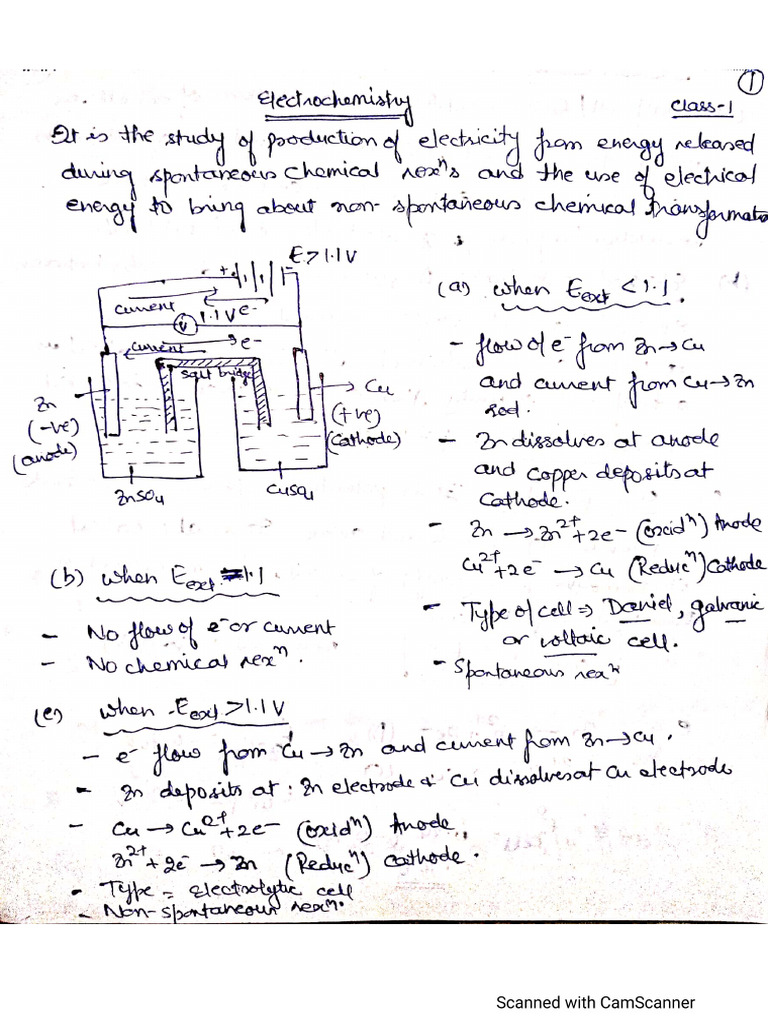 ①
Electrochemistry
Class-1
It is the study of production of electricity from energy released
during spontaneous chemical rexⁿs and the use of electrical
energy to bring about non-spontaneous chemical transformatio
E>1.1V
+
-
current
e-
V
1.1V
current
e-
salt bridge
Zn
(-ve)
(anode)
Cu
(+ve)
(cathode)
ZnSO4
CuSO4
(a) when Eext <1.1.
- flow of e- from Zn→Cu
and current from Cu→Zn
rod.
- Zn dissolves at anode
and copper deposits at
cathode.
- Zn → Zn2+ +2e- (oxidⁿ) Anode
Cu2+ +2e- → Cu (Reducⁿ) Cathode
- Type of cell ⇒ Daniel, galvanic
or voltaic cell.
- Spontaneous rexⁿ
(b) when Eext = 1.1
- No flow of e- or current
- No chemical rexⁿ.
(c) when Eext >1.1V
- e- flow from Cu→Zn and current from Zn→Cu.
- Zn deposits at Zn electrode & Cu dissolves at Cu electrode
- Cu → Cu2+ +2e- (oxidⁿ) Anode,
Zn2+ +2e- → Zn (Reducⁿ) Cathode.
- Type = Electrolytic cell
- Non-spontaneous rexⁿ.
Scanned with CamScanner